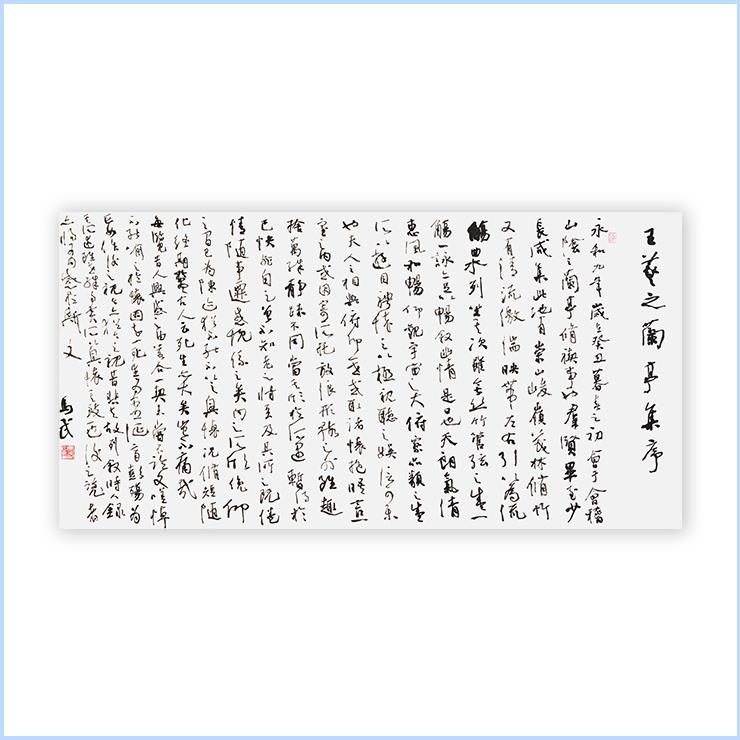 王羲之蘭亭集序
永和九年歲在癸丑暮春之初會于會稽
山陰之蘭亭脩禊事也羣賢畢至少
長咸集此地有崇山峻嶺茂林脩竹
又有清流激湍映帶左右引以為流
觴曲水列坐其次雖無絲竹管弦之盛一
觴一詠亦足以暢敘幽情是日也天朗氣清
惠風和暢仰觀宇宙之大俯察品類之盛
所以遊目騁懷足以極視聽之娛信可樂
也夫人之相與俯仰一世或取諸懷抱晤言一
室之內或因寄所託放浪形骸之外雖趣
捨萬殊靜躁不同當其欣於所遇暫得於
己快然自足曾不知老之將至及其所之既倦
情隨事遷感慨係之矣向之所欣俛仰
之間已為陳迹猶不能不以之興懷況脩短隨
化終期於盡古人云死生亦大矣豈不痛哉
每覽昔人興感之由若合一契未嘗不臨文嗟悼
不能喻之於懷固知一死生為虛誕齊彭殤為
妄作後之視今亦猶今之視昔悲夫故列敘時人錄
其所述雖世殊事異所以興懷其致一也後之覽者
亦將有感於斯文